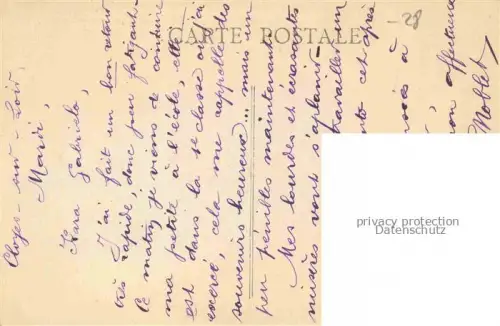 CARTE POSTALE
-28
Cloyes-sur-Loir,
Mardi,
Gabriela,
J'ai fait un bon retour
très rapide, donc peu fatigant.
Ce matin, je viens de conduire
ma petite à l'école, elle
est dans la 5e classe où j'ai
exercé, cela me rappelle des
souvenirs heureux... mais un
peu pénibles maintenant.
Mes lourdes et écrasantes
misères vont s'aplanir
travailler un
cet après
à
affectueuse
Noblet
privacy protection
www.ansichtskartenversand.com